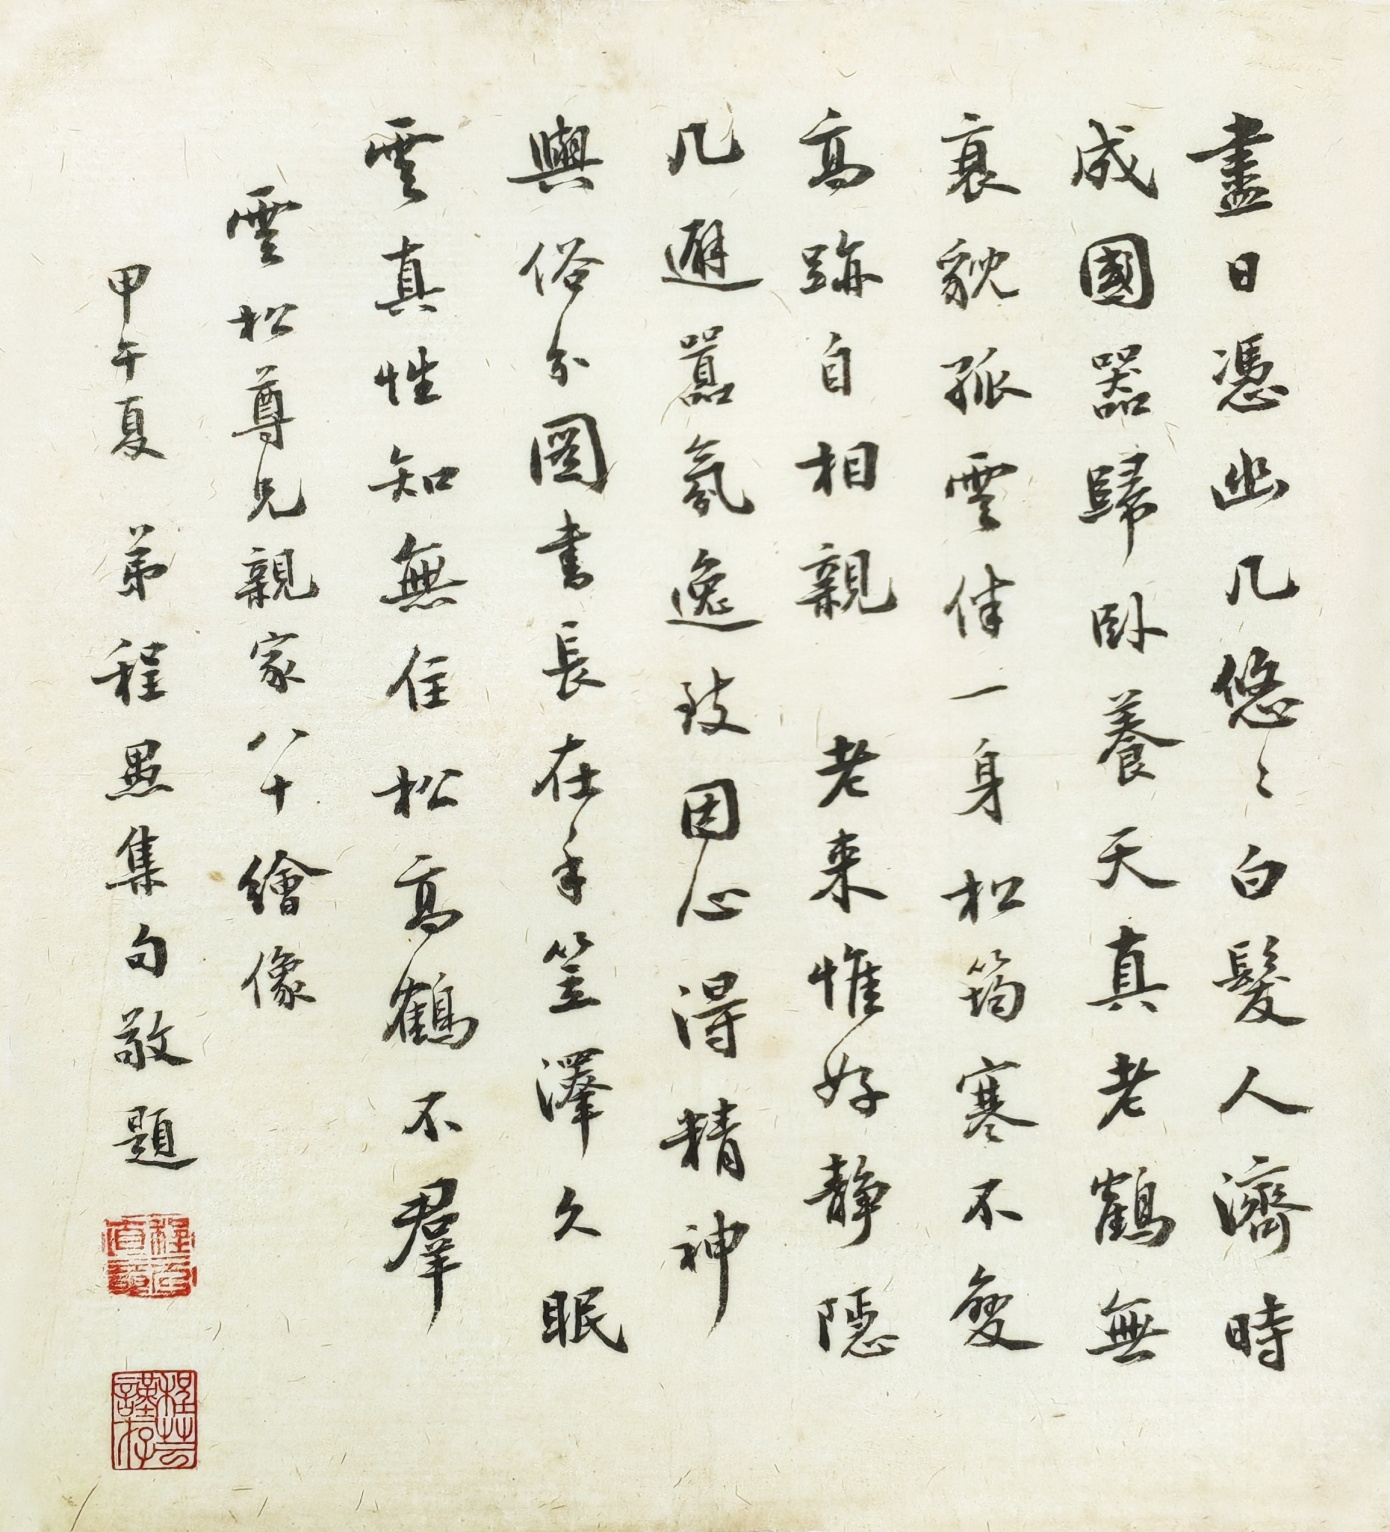 盡日憑幽几悠〻白髮人濟時
成國器歸卧養天真老鶴無
衰貌孤雲伴一身松筠寒不變
高跡自相親 老来惟好静隱
几避囂氛逸致因心得精神
與俗分圖書長在手笠澤久眠
雲真性知無住松高鶴不羣
雲松尊兄親家八十繪像
甲午夏 弟程愚集句敬題